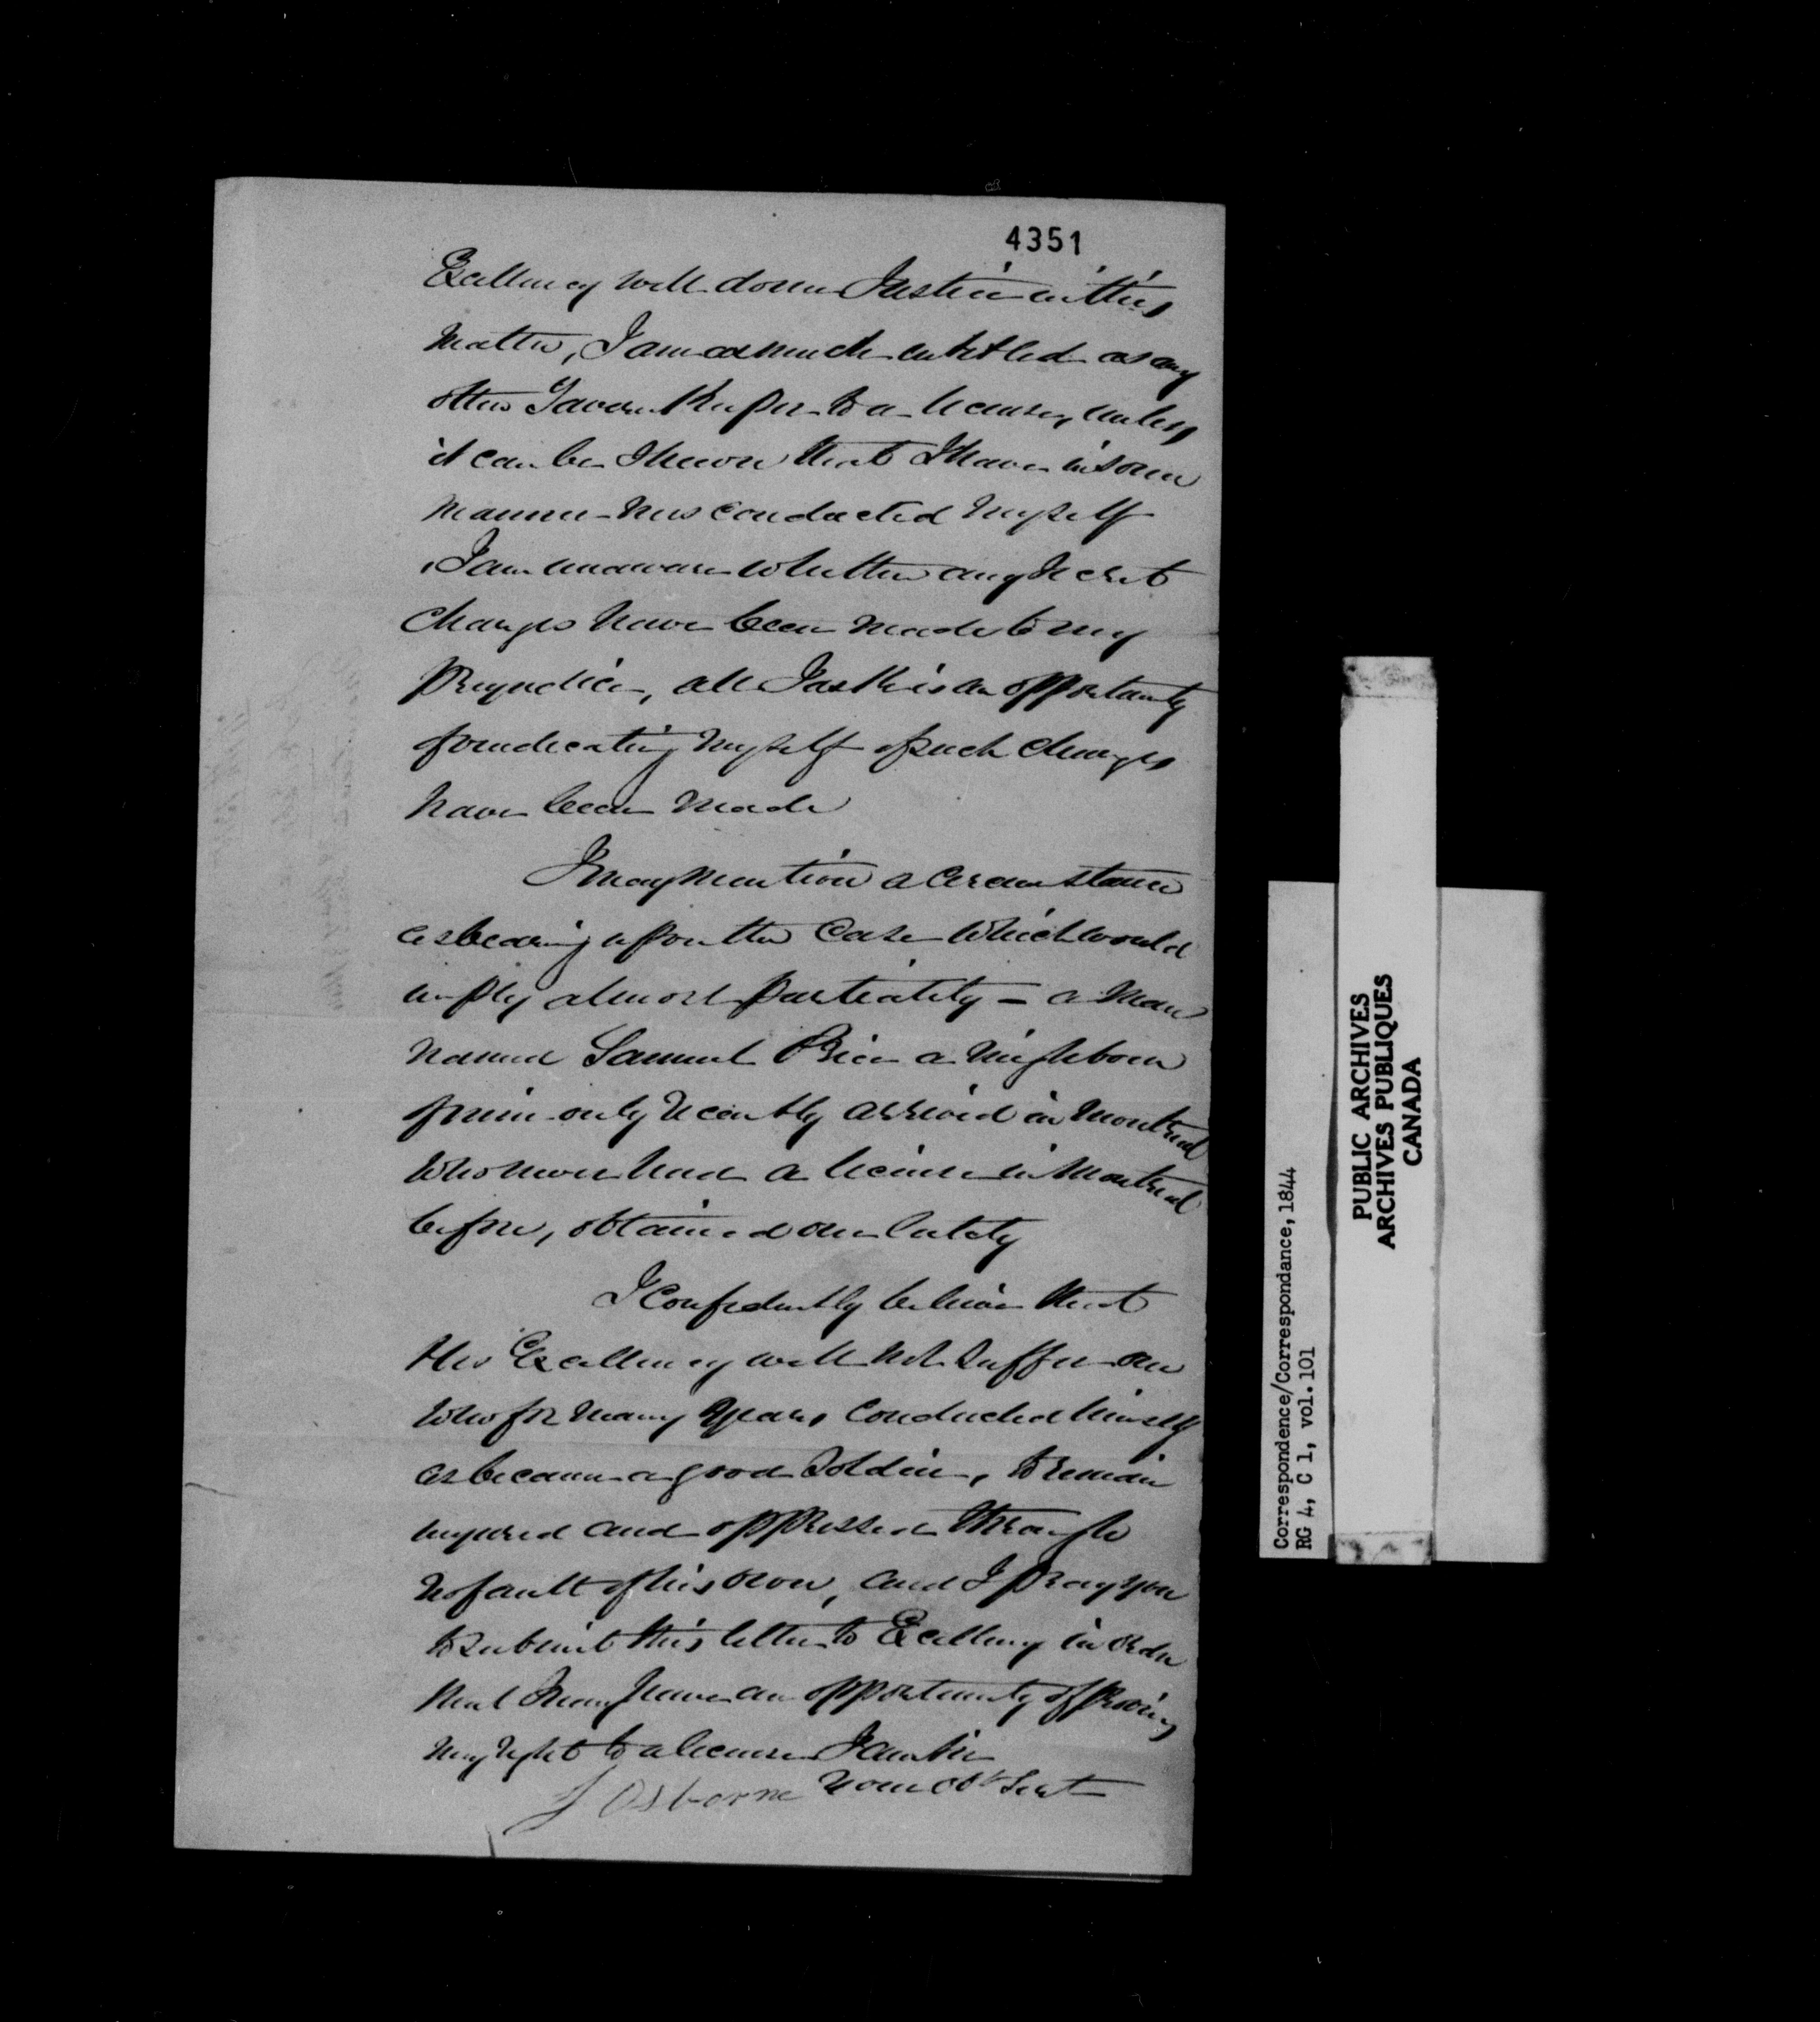 4351
Excellency will do me Justice in this
matter, I am as much entitled as any
other Tavern Keeper to a license, unless
it can be shewn that I have in some
manner misconducted myself
I am unaware whether any secret
charges have been made to my
prejudice, all I ask is an opportunity
of vindicating myself if such charges
have been made
I may mention a circumstance
as bearing upon the case which would
imply almost partiality - a man
named Samuel Price a neighbour
of mine only recently arrived in Montreal
who never had a license in Montreal
before, obtained one lately
I confidently believe that
His Excellency will not suffer one
who for many years conducted himself
as became a good soldier, to remain
injured and oppressed through
no fault of his own, and I pray you
to submit this letter to Excellency in order
that I may have an opportunity of proving
my right to a license I am Sir
Your obt Servt
J Osborne
Correspondence/Correspondance, 1844
RG 4, C 1, vol. 101
PUBLIC ARCHIVES
ARCHIVES PUBLIQUES
CANADA